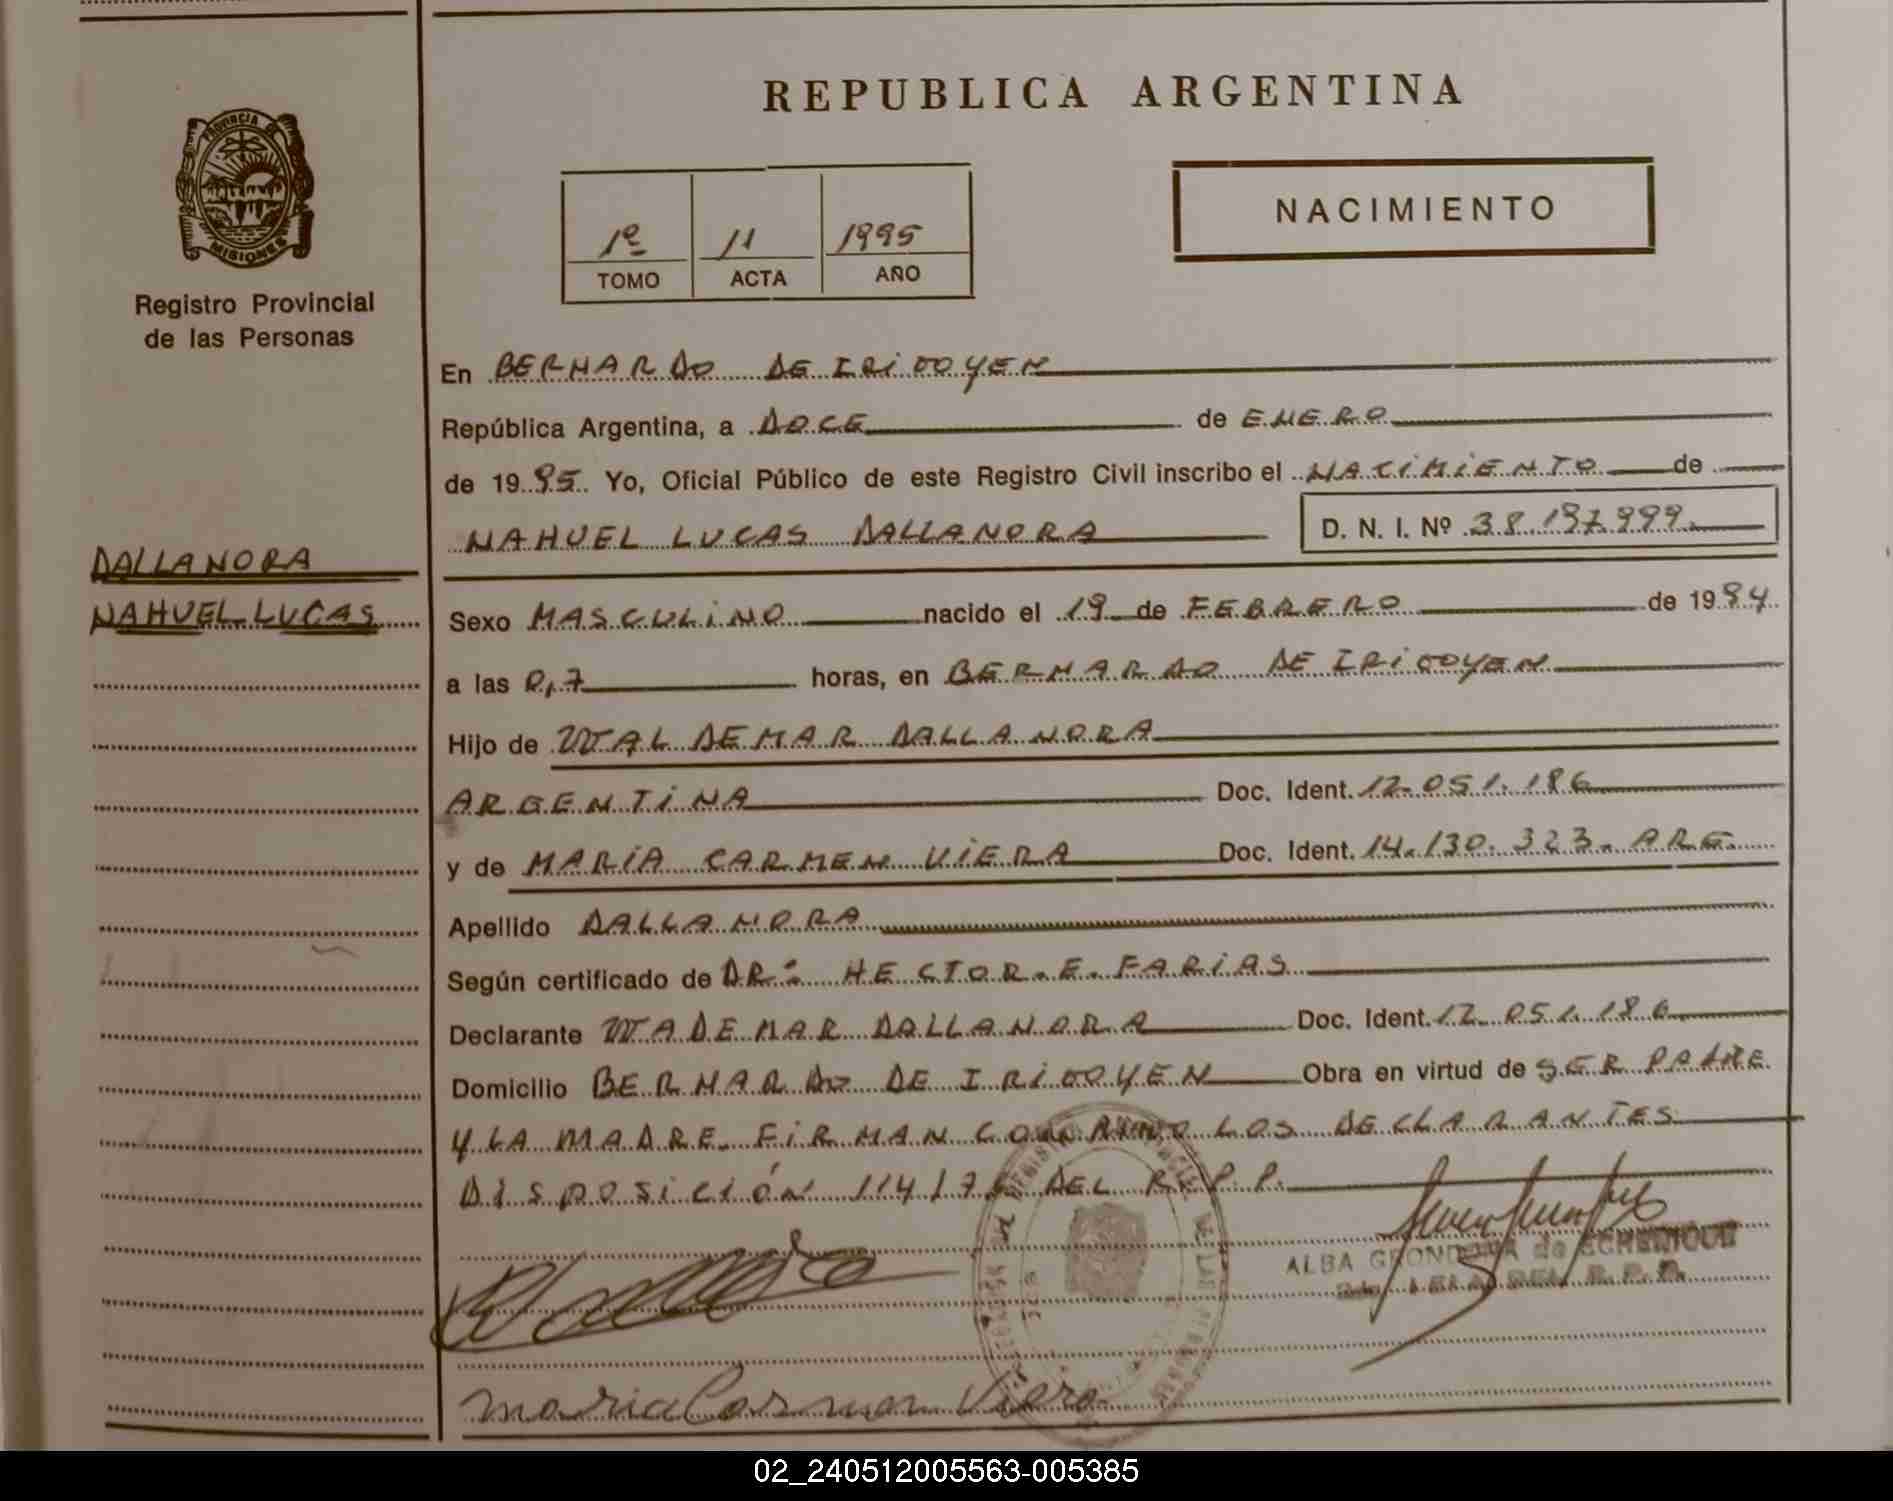 REPUBLICA ARGENTINA
PROVINCIA DE
MISIONES
Registro Provincial
de las Personas
1º 11 1995
TOMO ACTA AÑO
NACIMIENTO
En BERNARDO DE IRIGOYEN
República Argentina, a DOCE de ENERO
de 1995. Yo, Oficial Público de este Registro Civil inscribo el NACIMIENTO de
NAHUEL LUCAS DALLANORA D. N. I. Nº 38.197.999.
DALLANORA
NAHUEL LUCAS
Sexo MASCULINO nacido el 19 de FEBRERO de 1994.
a las 0,7 horas, en BERNARDO DE IRIGOYEN
Hijo de WALDEMAR DALLANORA
ARGENTINA Doc. Ident. 12.051.186
y de MARIA CARMEN VIERA Doc. Ident. 14.130.323. ARG.
Apellido DALLANORA
Según certificado de DR: HECTOR. E. FARIAS
Declarante WADEMAR DALLANORA Doc. Ident. 12.051.186
Domicilio BERNARDO DE IRIGOYEN Obra en virtud de SER PADRE
Y LA MADRE. FIRMAN LOS DECLARANTES
DISPOSICIÓN DEL R.P.P.
ALBA
Maria Carmen Viera
02_240512005563-005385